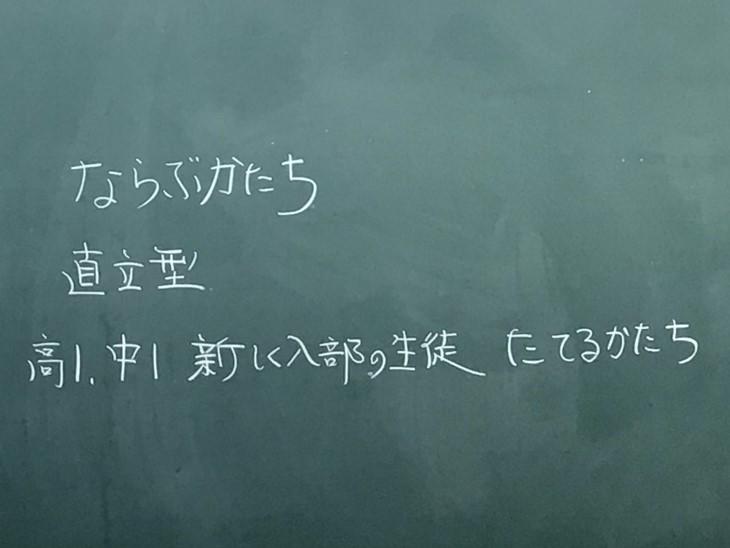 ならぶかたち
直立型
高1、中1 新しく入部の生徒 たてるかたち